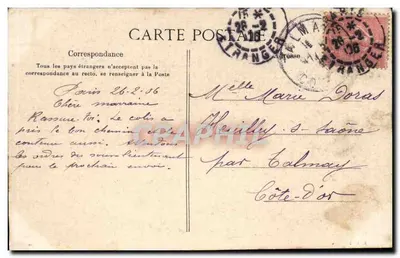 CARTE POSTALE
Correspondance
Tous les pays étrangers n'acceptent pas la
correspondance au recto, se renseigner à la Poste
Paris 26-2-06
Chère marraine
Rassure toi. Le colis a
pris le bon chemin
contenu aussi. Attendons
les ordres du sous lieutenant
pour le prochain envoi.
Melle Marie Doras
Heuilley s- Saône
par Talmay
Côte-d'or
ETRANGER
26-2
06
TALMAY
PARIS
26-2
06
ETRANGER